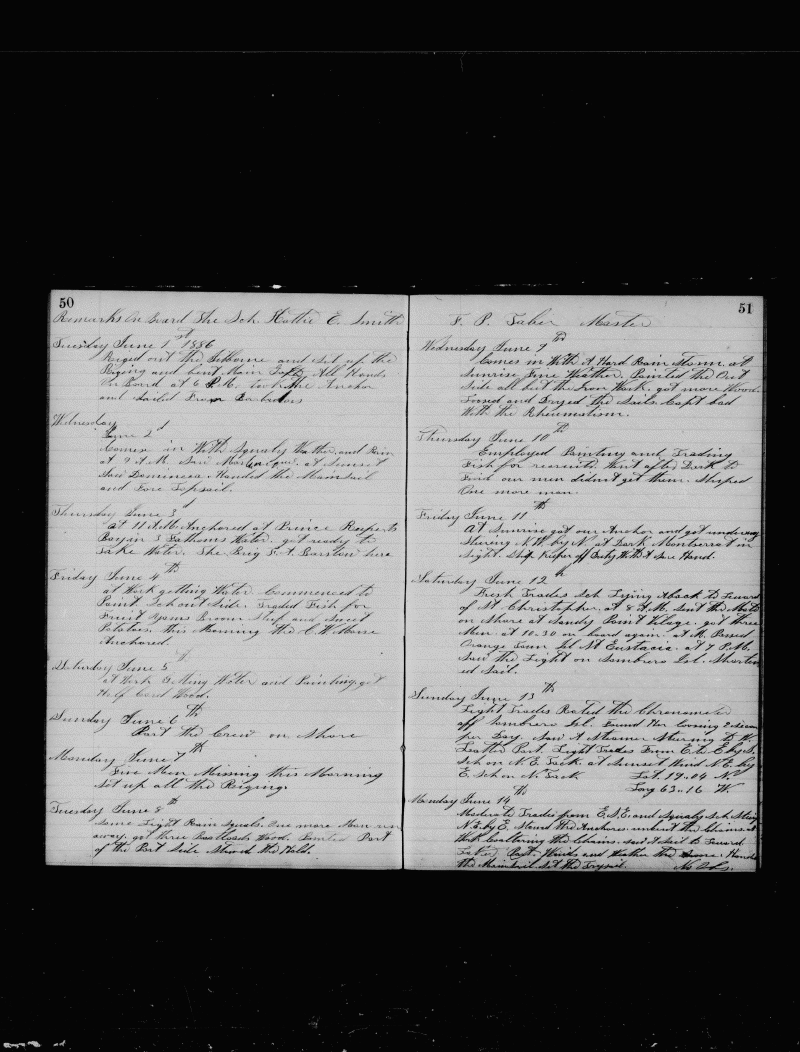 50
Remarks On Board The Sch. Hattie E. Smith
Tuesday June 1st 1886
Riged out the Jibbone and set up the
Riging and bent Main Topsl. All Hands
on Bord at 6 P.M. took the Anchor
and sailed From Barbados
Wednesday
June 2d
Comes in With Squaly Wether and Rain
at 9 A.M. Saw at Sunset
Saw Dominica. Handed the Mainsail
and Fore Topsail.
Thursday June 3d
at 11 A.M. Anchored at Prince Ruperts
Bay in 3 Fathoms Water. got ready to
Take Water. The Brig F. A. Barstow here
Friday June 4th
at Work getting Water. Commenced to
Paint Sch out Side. Traded Fish for
Fruit Yams and Sweet
Potatoes. this Morning the C. W. Morse
Anchored.
Saturday June 5
at Work Water and Painting. got
Half Cord Wood.
Sunday June 6th
Part the Crew on Shore
Monday June 7th
Five Men Missing this Morning
Set up all the Riging.
Tuesday June 8th
some Light Rain Squals. One more Man run
away. got three Boatloads Wood. Painted Part
of the Port Side the Hold.
51
F. P. Taber Master
Wednesday June 9th
Comes in With A Hard Rain Storm. at
Sunrise Fine Weather. Painted the Out
Side all but the Iron Work. got more Wood.
Loosed and Dryed the Sails. Capt bad
With the Rheumatism.
Thursday June 10th
Employed Painting and Trading
Fish for recruits. Went after Dark to
Find our men didn't get them. Shiped
One more man.
Friday June 11th
At Sunrise got our Anchor and got underway
Stering N.W. by N. at Dark Montserrat in
Sight. Ship Keeper off Duty With A Sore Hand.
Saturday June 12th
Fresh Trades Sch Lying Aback to Leward
of St Christopher. at 8 A.M. Sent the Mate
on Shore at Sandy Point Vilage. got three
Men. at 10-30 on board again. at M. Passed
Orange Town Isl St Eustacia. at 7 P.M.
Saw the Light on Sombrero Isl. Shorten
ed Sail.
Sunday June 13th
Light Trades Rated the Chronometer
off Sombrero Isl. Found Her Loosing 2 Secon
per Day. Saw A Steamer Stering to W.
Latter Part Light Trades From E. to E. by S.
Sch on N.E. Tack. at Sunset Wind N.E. by
E. Sch on N. Tack Lat. 19.04 N
Long 63.16 W
Monday June 14th
Moderate Trades from E.S.E. and Squaly Sch Stering
N.E. by E. the Anchors unbent the Chains
Coaltaring the Chains.
Latter Part Winds and Wether the Same. Handed
the Mainsail. Set the Trysail. No Obs.